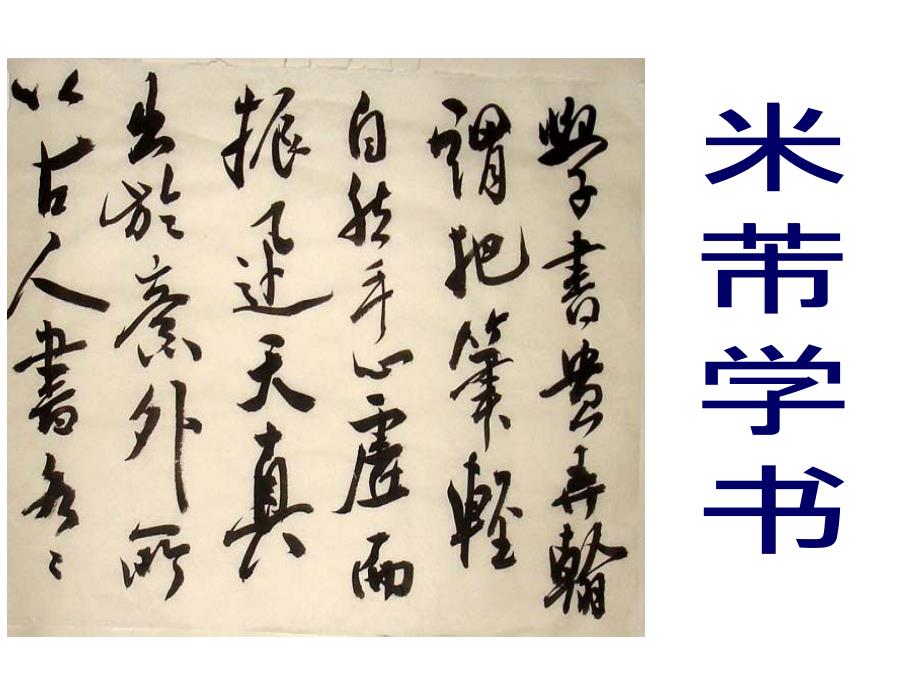 米芾学书
學書貴弄翰
謂把筆輕
自然手心虛而
振迅天真
出於意外所
以古人書各〻